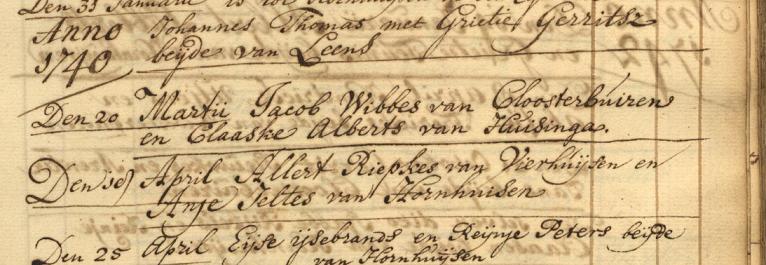 Den 31 Januarii is tot
Anno Johannes Thomas met Grietie Gerrits
1740 beijde van Leens
Den 20 Martii Jacob Wibbes van Cloosterbuiren
en Claaske Alberts van Huisinga.
Den April Allert Riepkes van Vierhuijsen en
Anje Jeltes van Hornhuisen
Den 25 April Eijse ijsebrands en Reijnje Peters beijde
van Hornhuijsen